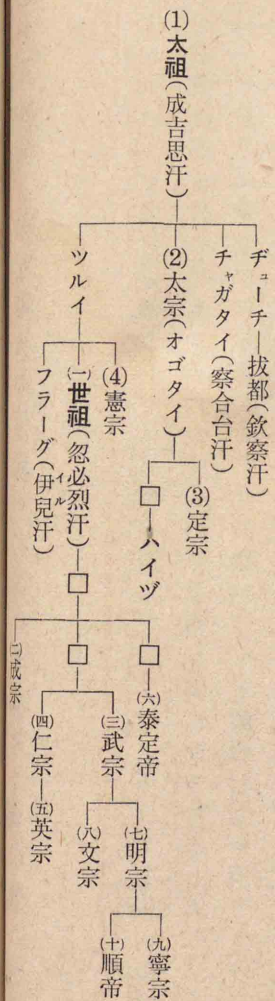 (1)太祖(成吉思汗)
ヂューチ―拔都(欽察汗)
チャガタイ(察合台汗)
(2)太宗(オゴタイ)
(3)定宗
□―ハイヅ
ツルイ
(4)憲宗
(一)世祖(忽必烈汗)
フラーグ(伊兒汗)
イル
□
□
(六)泰定帝
□
(三)武宗
(七)明宗
(九)寧宗
(十)順帝
(八)文宗
(四)仁宗―(五)英宗
(二)成宗